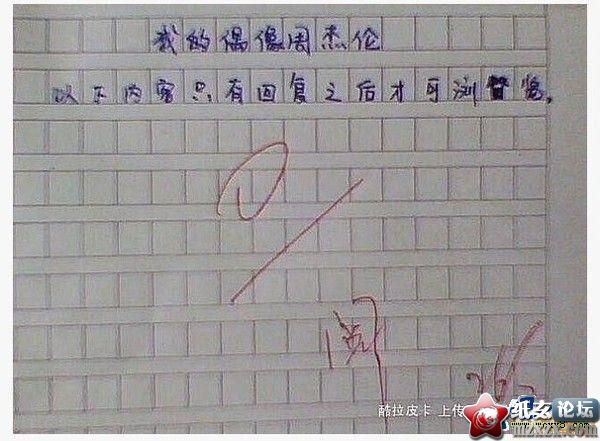 我的偶像周杰伦
以下内容只有回复之后才可浏览。
0
阅
酷拉皮卡 上传
纸女论坛